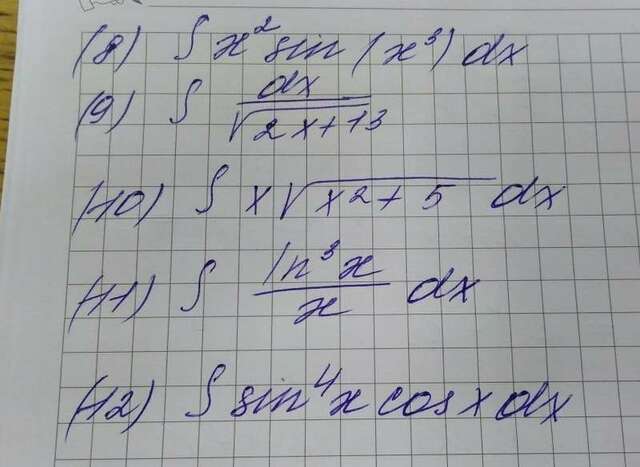 (8) ∫ x² sin (x³) dx
(9) ∫ dx / √(2x+13)
(10) ∫ x √(x²+5) dx
(11) ∫ ln³x / x dx
(12) ∫ sin⁴x cos x dx